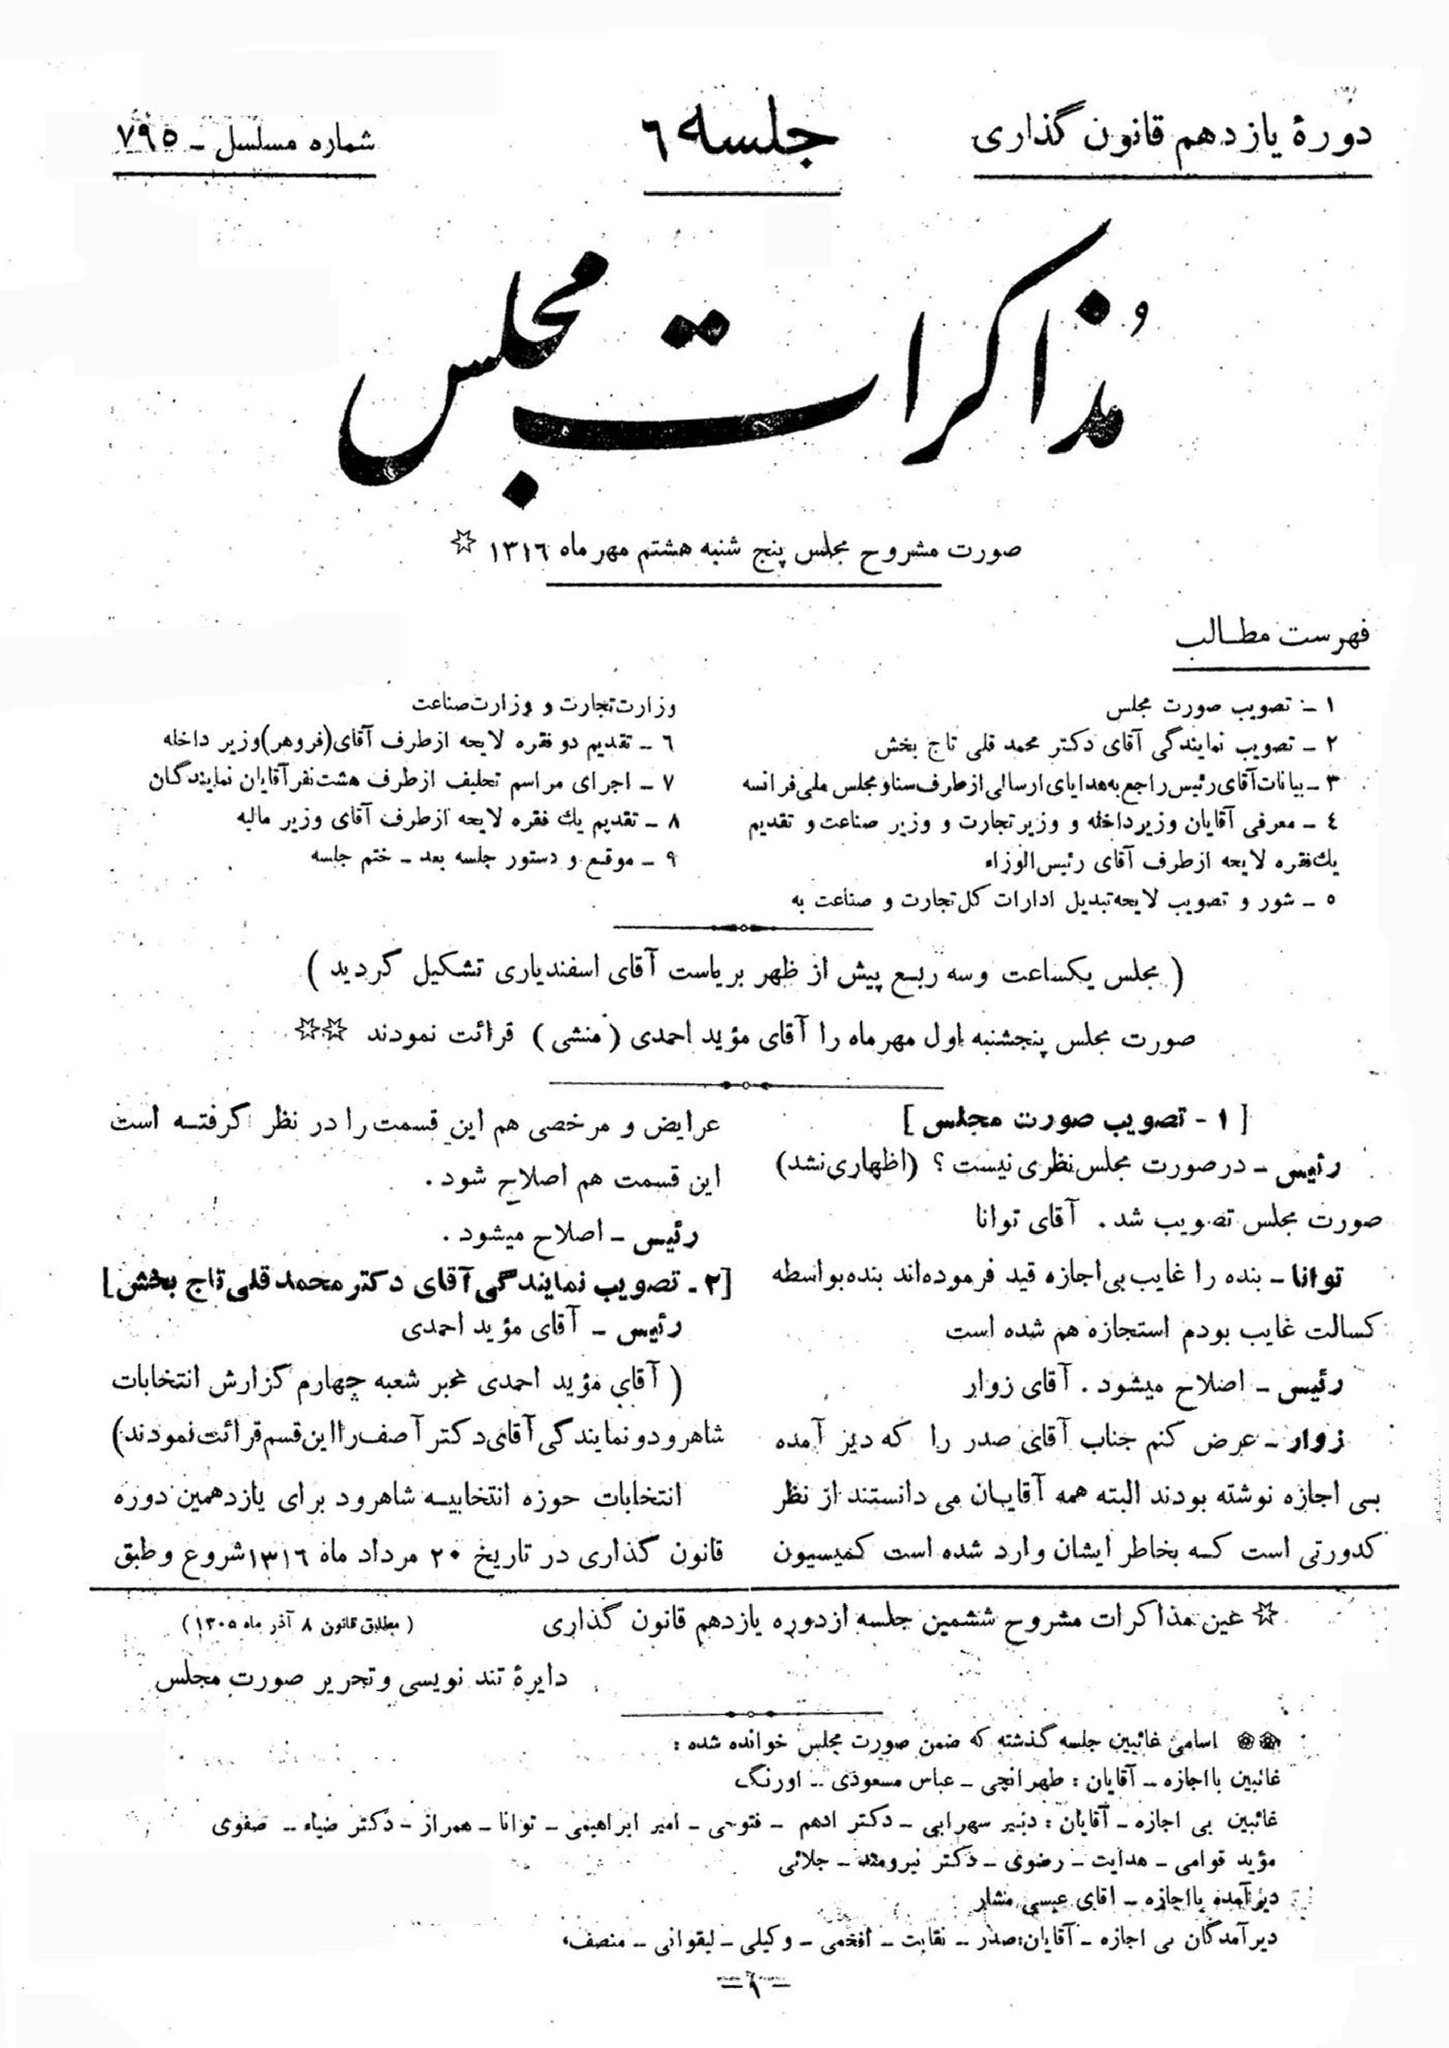 دورهٔ یازدهم قانون گذاری
جلسه ٦
شماره مسلسل ـ ۷۹۵
مُذاکرات مجلس
صورت مشروح مجلس پنج شنبه هشتم مهر ماه ۱۳۱٦ ☆
فهرست مطـالب
۱ ـ تصویب صورت مجلس
۲ ـ تصویب نمایندگی آقای دکتر محمد قلی تاج بخش
۳ ـ بیانات آقای رئیس راجع به هدایای ارسالی از طرف سنا و مجلس ملی فرانسه
٤ ـ معرفی آقایان وزیر داخله و وزیر تجارت و وزیر صناعت و تقدیم
یك فقره لایحه از طرف آقای رئیس الوزراء
٥ ـ شور و تصویب لایحه تبدیل ادارات کل تجارت و صناعت به
وزارت تجارت و وزارت صناعت
٦ ـ تقدیم دو فقره لایحه از طرف آقای (فروهر) وزیر داخله
۷ ـ اجرای مراسم تحلیف از طرف هشت نفر آقایان نمایندگان
۸ ـ تقدیم یك فقره لایحه از طرف آقای وزیر مالیه
۹ ـ موقع و دستور جلسه بعد ـ ختم جلسه
( مجلس یکساعت و سه ربع پیش از ظهر بریاست آقای اسفندیاری تشکیل گردید )
صورت مجلس پنجشنبه اول مهر ماه را آقای مؤید احمدی ( منشی ) قرائت نمودند ☆☆
[ ۱ - تصویب صورت مجلس ]
رئیس ـ در صورت مجلس نظری نیست ؟ (اظهاری نشد)
صورت مجلس تصویب شد . آقای توانا
توانا ـ بنده را غایب بی اجازه قید فرموده‌اند بنده بواسطه
کسالت غایب بودم استجازه هم شده است
رئیس ـ اصلاح میشود . آقای زوار
زوار ـ عرض کنم جناب آقای صدر را که دیر آمده
بی اجازه نوشته بودند البته همه آقایان می دانستند از نظر
کدورتی است که بخاطر ایشان وارد شده است کمیسیون
عرایض و مرخصی هم این قسمت را در نظر گرفتـه است
این قسمت هم اصلاح شود .
رئیس ـ اصلاح میشود .
[۲ ـ تصویب نمایندگی آقای دکتر محمد قلی تاج بخش]
رئیس ـ آقای مؤید احمدی
( آقای مؤید احمدی مخبر شعبه چهارم گزارش انتخابات
شاهرود و نمایندگی آقای دکتر آصف را این قسم قرائت نمودند)
انتخابات حوزه انتخابیـه شاهرود برای یازدهمین دوره
قانون گذاری در تاریخ ۲۰ مرداد ماه ۱۳۱٦ شروع و طبق
☆ عین مذاکرات مشروح ششمین جلسه از دوره یازدهم قانون گذاری
( مطابق قانون ۸ آذر ماه ۱۳۰۵ )
دایرهٔ تند نویسی و تحریر صورت مجلس
اسامی غائبین جلسه گذشته که ضمن صورت مجلس خوانده شده :
غائبین با اجازه ـ آقایان : طهرانچی ـ عباس مسعودی ـ اورنگ
غائبین بی اجازه ـ آقایان : دبیر سهرابی ـ دکتر ادهم ـ فتوحی ـ امیر ابراهیمی ـ توانا ـ همراز ـ دکتر ضیاء ـ صفوی
مؤید قوامی ـ هدایت ـ رضوی ـ دکتر نیرومند ـ جلائی
دیر آمده با اجازه ـ آقای عیسی مشار
دیر آمدگان بی اجازه ـ آقایان: صدر ـ نقابت ـ افخمی ـ وکیلی ـ لیقوانی ـ منصف